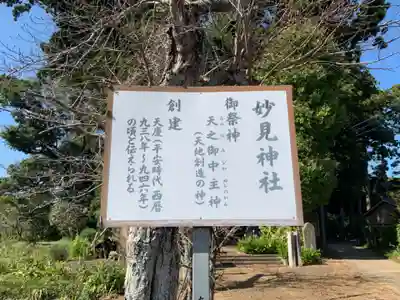 妙見神社
御祭神
天之御中主神
(天地創造の神)
創建
天慶(平安時代 西暦
九三八年〜九四六年)
の頃と伝えられる